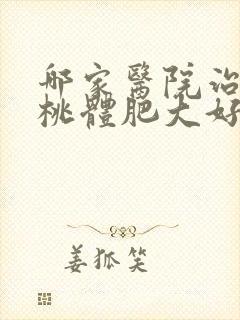 邮家醫院治
桃體肥大好
姜狐笑